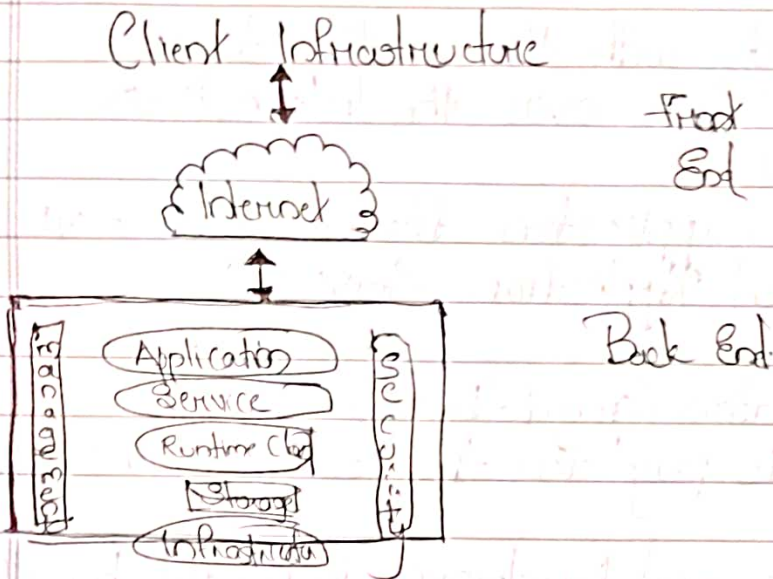 Client Infrastructure
Front
End
Internet
Back End
Management
Application
Service
Runtime Cloud
Storage
Infrastructure
Security